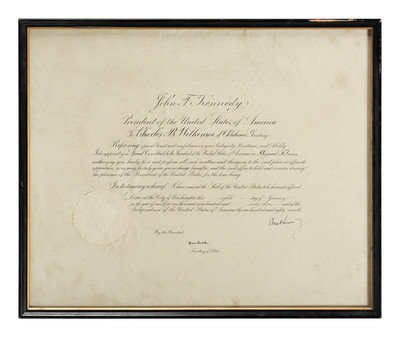 John F. Kennedy
President of the United States of America
To Charles B. Wilkinson, of Oklahoma, Greeting:
Reposing special trust and confidence in your Integrity, Prudence, and Ability
I do appoint you Special Consultant to the President of the United States of America on Physical Fitness,
authorizing you, hereby, to do and perform all such matters and things as to the said place or office do
appertain, or as may be duly given you in charge hereafter, and the said office to hold and exercise during
the pleasure of the President of the United States for the time being.
In testimony whereof, I have caused the Seal of the United States to be hereunto affixed.
Done at the City of Washington this eighth day of January,
in the year of our Lord one thousand nine hundred and sixty-three and of the
Independence of the United States of America the one hundred and eighty-seventh.
By the President:
Secretary of State.